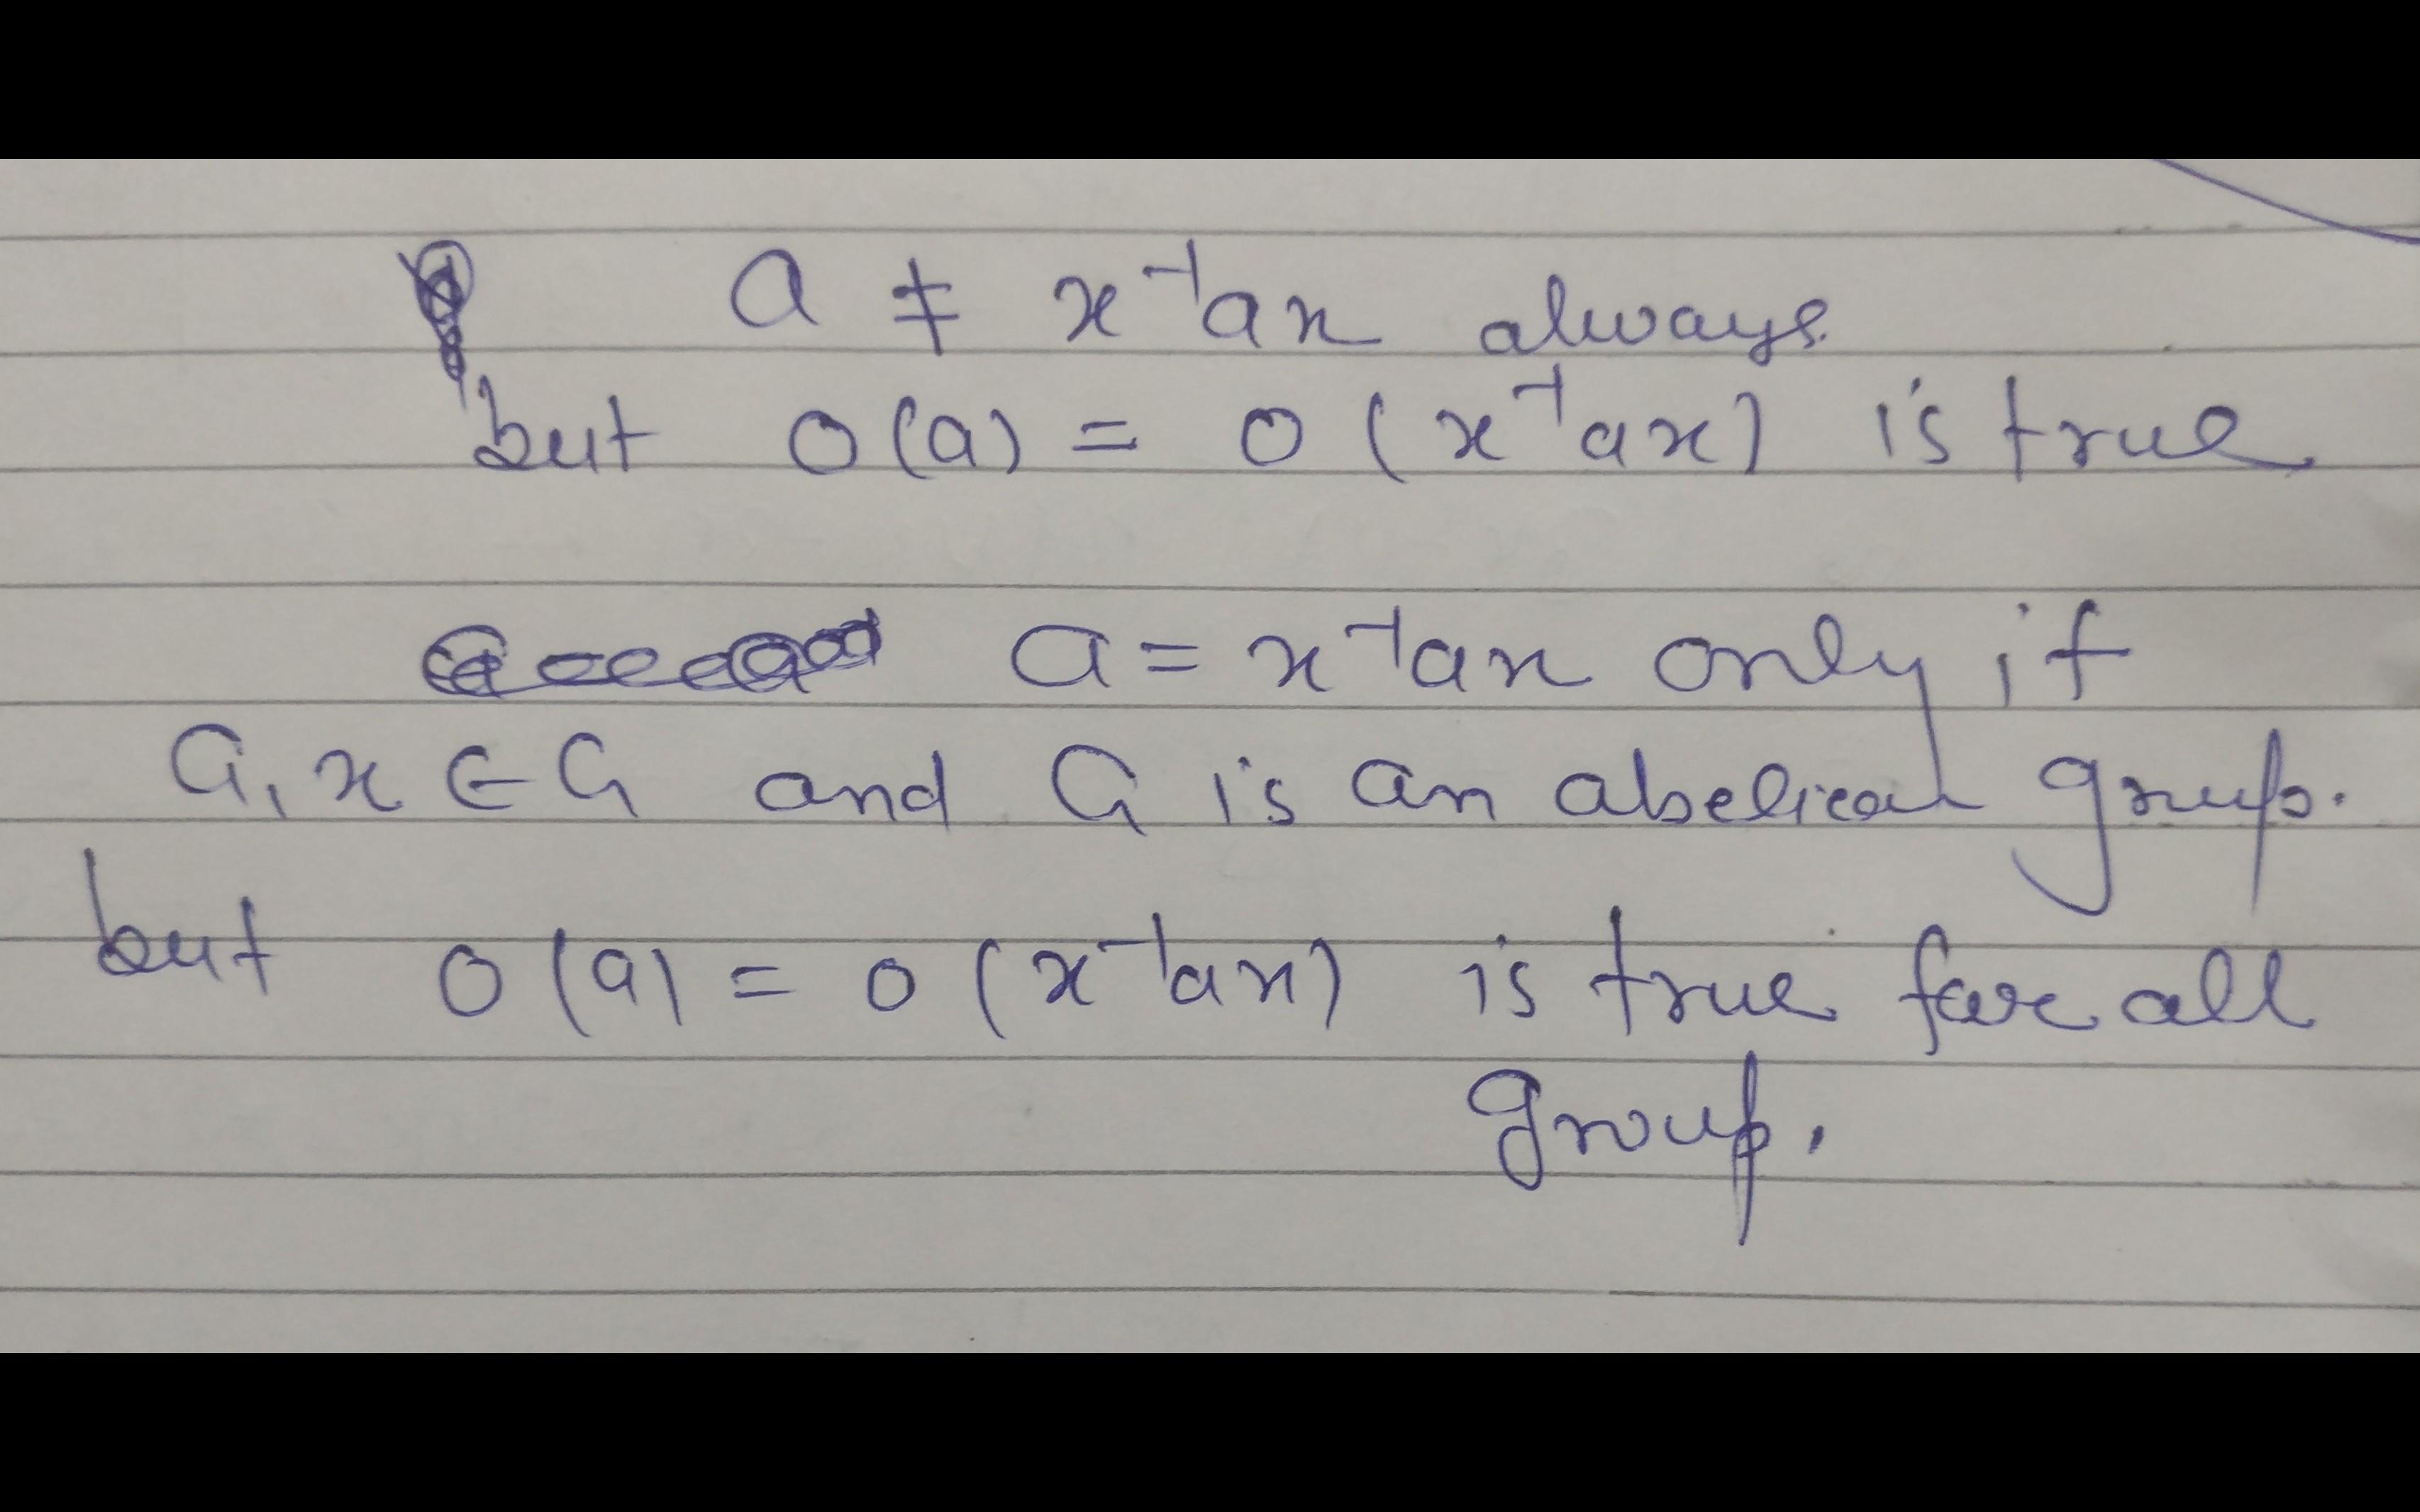 a ≠ x⁻¹ax always.
but O(a) = O(x⁻¹ax) is true
a = x⁻¹ax only if
a, x ∈ G and G is an abelican group.
but O(a) = O(x⁻¹ax) is true for all
group.